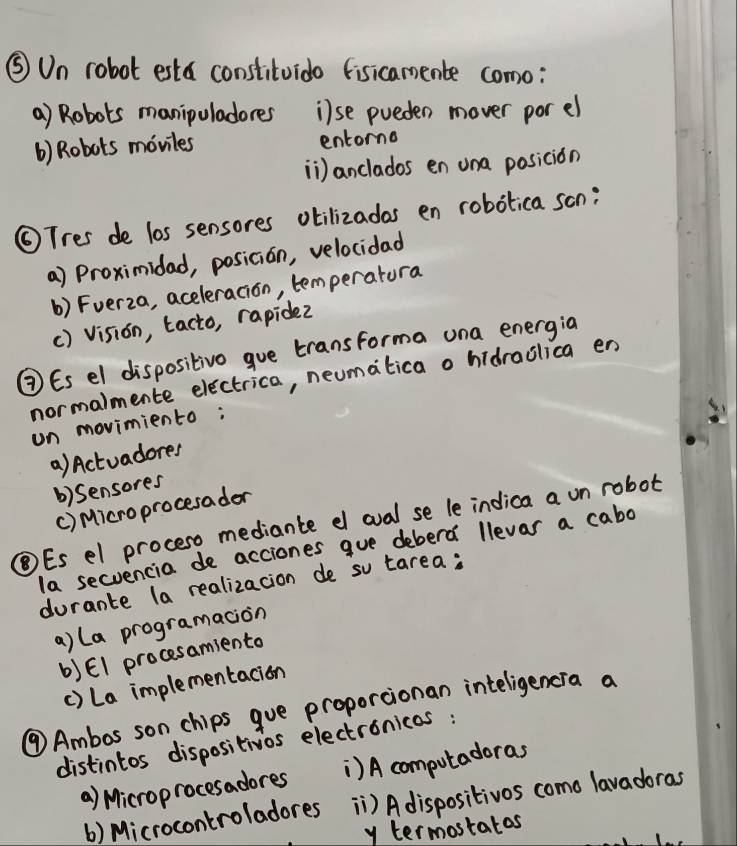 ⑤ Un robot está constituido fisicamente como:
a) Robots manipuladores i) se pueden mover por el entorno
b) Robots móviles ii) anclados en una posición
⑥ Tres de los sensores utilizados en robótica son:
a) Proximidad, posición, velocidad
b) Fuerza, aceleración, temperatura
c) Visión, tacto, rapidez
⑦ Es el dispositivo que transforma una energia
normalmente eléctrica, neumática o hidraúlica en
un movimiento:
a) Actuadores
b) Sensores
c) Microprocesador
⑧ Es el proceso mediante el cual se le indica a un robot
la secuencia de acciones que deberá llevar a cabo
durante la realizacion de su tarea:
a) La programación
b) El procesamiento
c) La implementación
⑨ Ambos son chips que proporcionan inteligencia a
distintos dispositivos electrónicos:
a) Microprocesadores i) A computadoras
b) Microcontroladores ii) A dispositivos como lavadoras
y termostatos